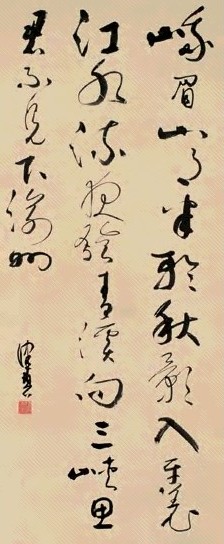 峨眉山月半輪秋影入平羌
江水流夜發青溪向三峽思
君不見下渝州